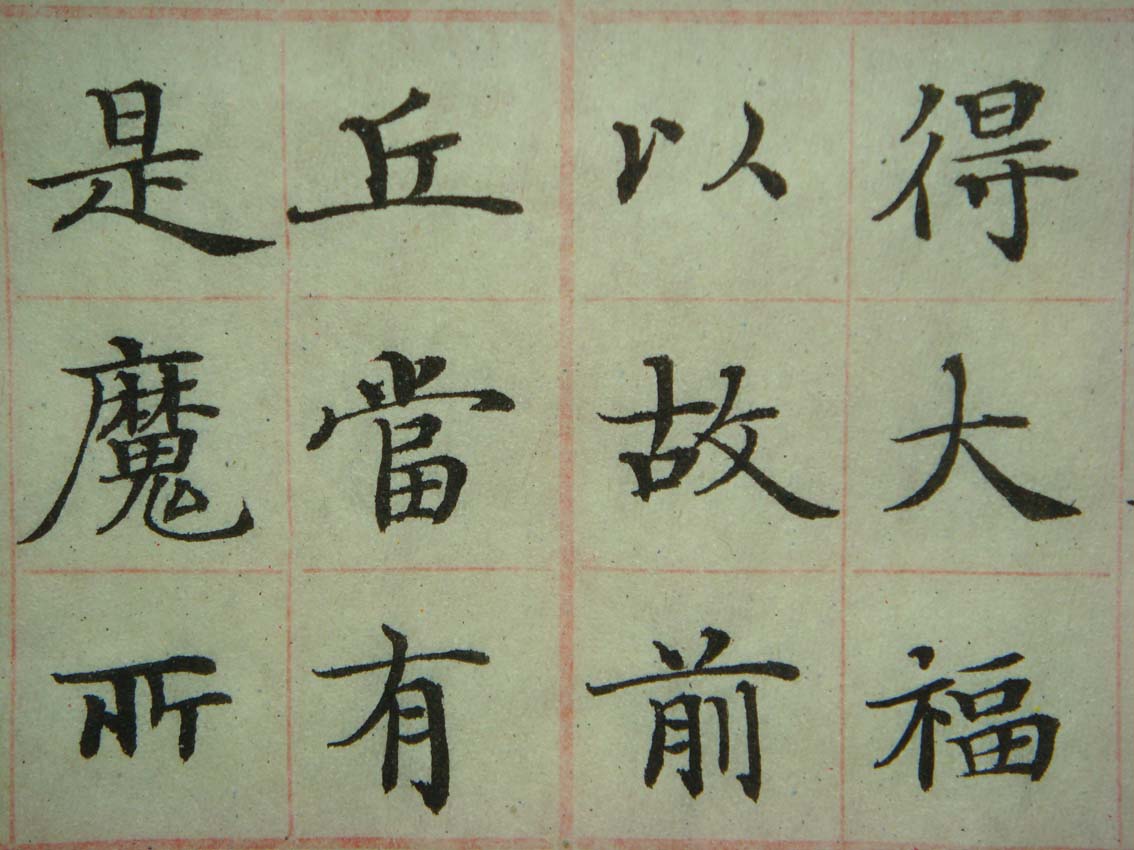 得大福
以故前
丘當有
是魔所